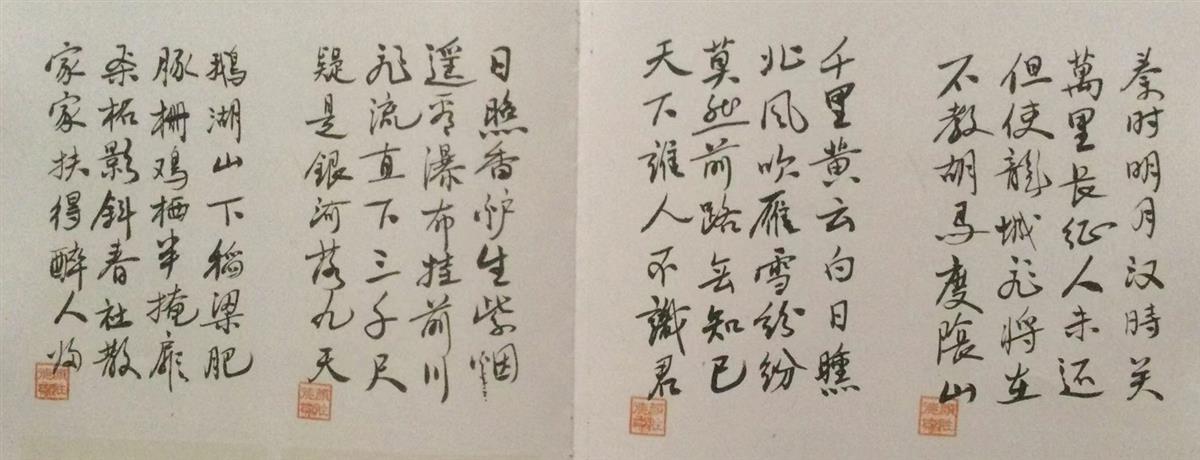 秦时明月汉時关
萬里长征人未还
但使龍城飞将在
不教胡马度陰山
千里黄云白日曛
北风吹雁雪纷纷
莫愁前路无知己
天下谁人不識君
日照香炉生紫烟
遥看瀑布挂前川
飞流直下三千尺
疑是銀河落九天
鵝湖山下稻梁肥
豚栅鸡栖半掩扉
桑柘影斜春社散
家家扶得醉人归